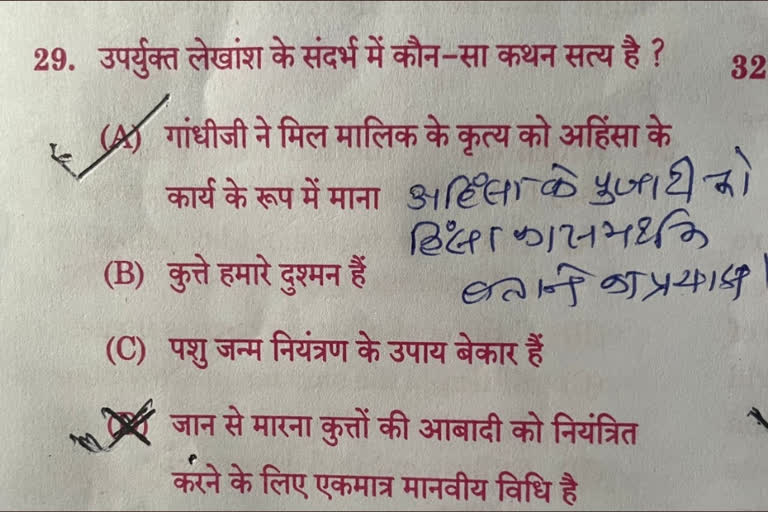 29. उपर्युक्त लेखांश के संदर्भ में कौन-सा कथन सत्य है ?
32
(A) गांधीजी ने मिल मालिक के कृत्य को अहिंसा के
कार्य के रूप में माना
अहिंसा के पुजारी को
हिंसा का समर्थक
बताने का प्रयास।
(B) कुत्ते हमारे दुश्मन हैं
(C) पशु जन्म नियंत्रण के उपाय बेकार हैं
(D) जान से मारना कुत्तों की आबादी को नियंत्रित
करने के लिए एकमात्र मानवीय विधि है